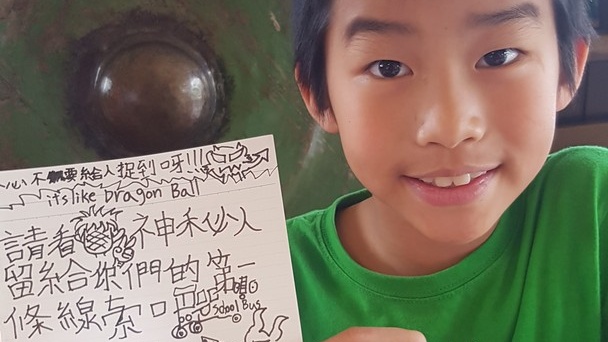 心不要給人捉到呀!!!
it's like Dragon Ball
請看神秘人
留給你們的第一
條線索
school Bus